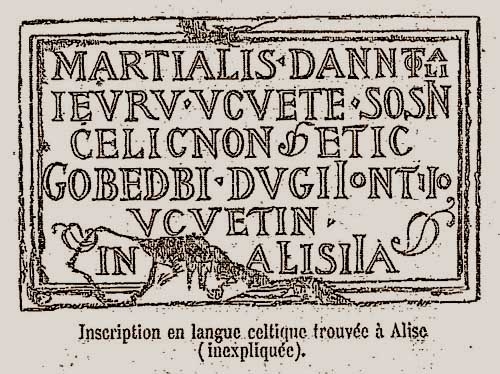 MARTIALIS·DANNOTALI
IEVRV·VCVETE·SOSIN
CELICNON ETIC
GOBEDBI·DVGIIONTIIO
VCVETIN·
IN ALISIIA
Inscription en langue celtique trouvée à Alise
(inexpliquée).